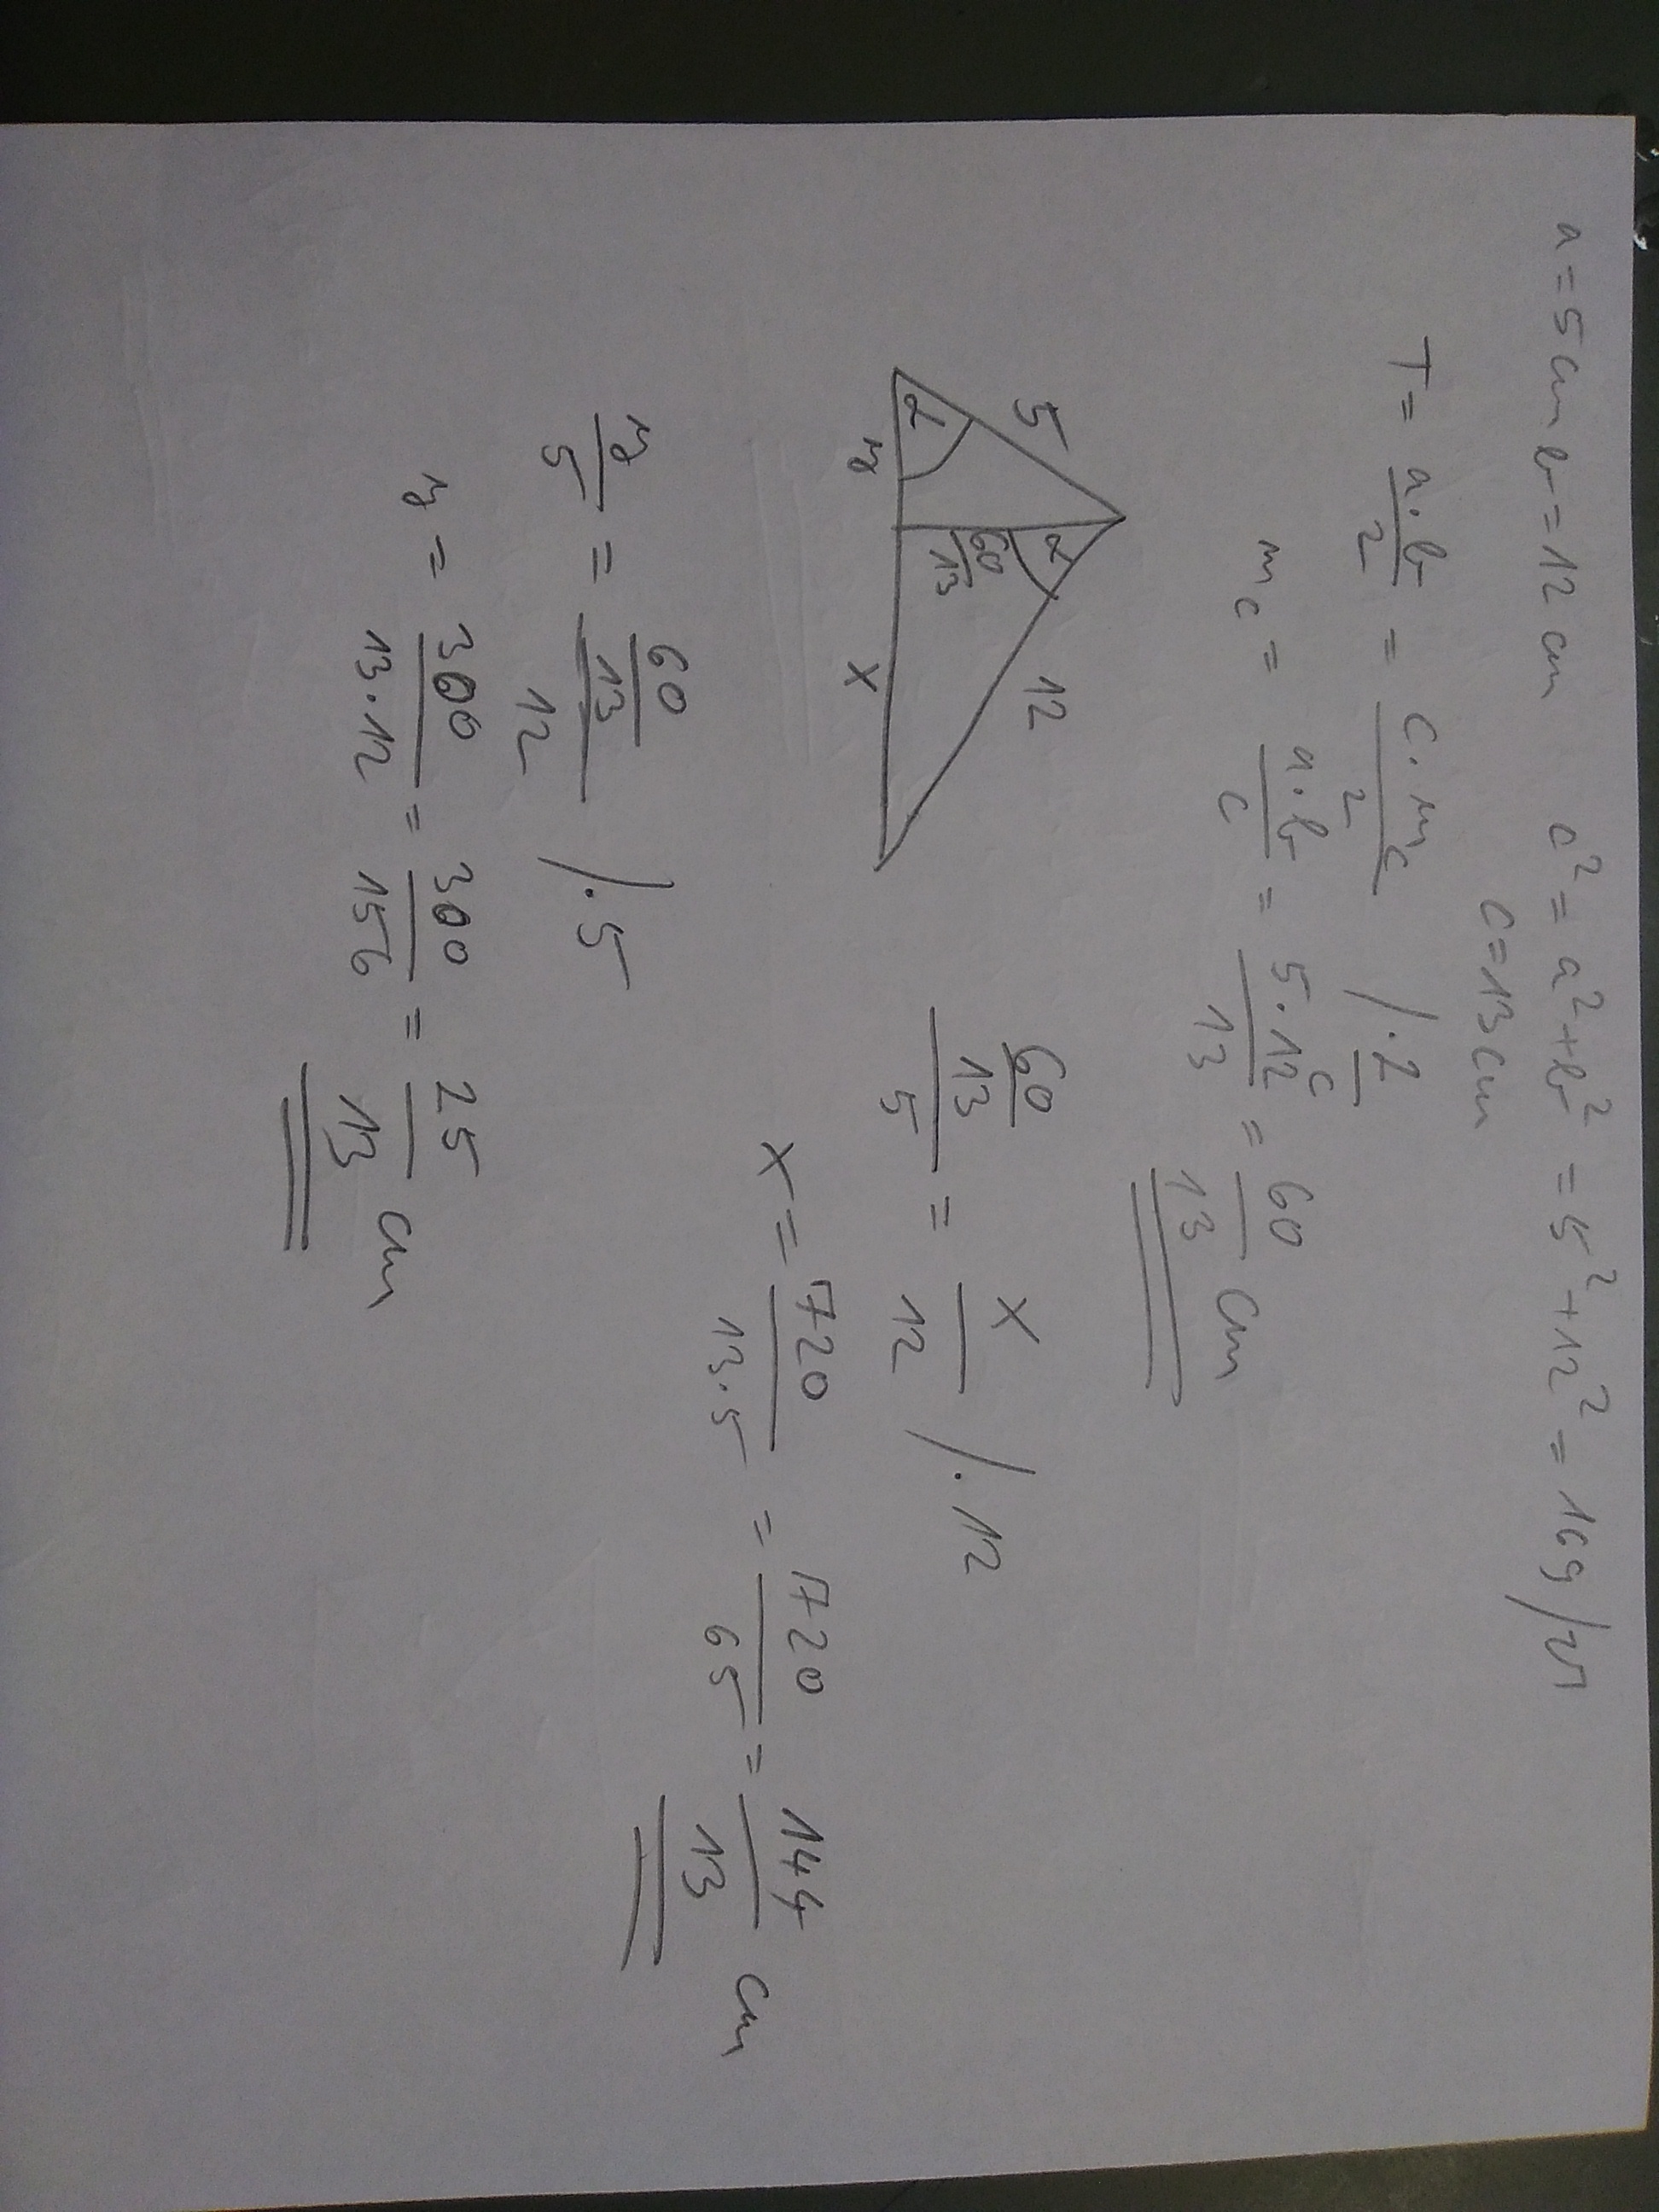 a = 5cm b = 12 cm c² = a² + b² = 5² + 12² = 169 /√
c = 13 cm
T = a·b/2 = c·m_c/2 /·2/c
m_c = a·b/c = 5·12/13 = 60/13 cm
5 α 12
α 60/13
y x
60/13/5 = x/12 /·12
x = 720/13·5 = 720/65 = 144/13 cm
y/5 = 60/13/12 /·5
y = 300/13·12 = 300/156 = 25/13 cm